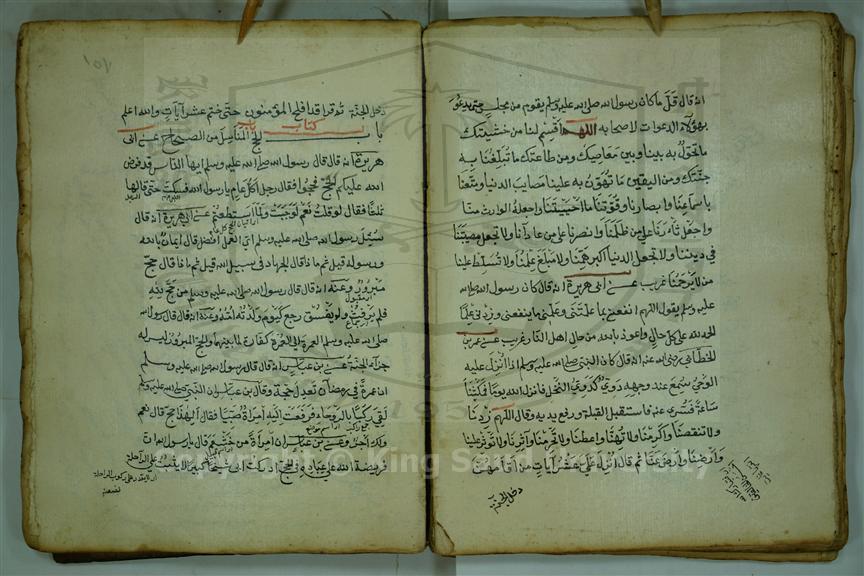 انه قال قلّ ما كان رسول الله صلى الله عليه وسلم يقوم من مجلس حتى يدعو
بهؤلاء الدعوات لاصحابه اللهم اقسم لنا من خشيتك
ما تحول به بيننا وبين معاصيك ومن طاعتك ما تبلغنا به
جنتك ومن اليقين ما تهون به علينا مصايب الدنيا ومتعنا
باسماعنا وابصارنا وقوتنا ما احييتنا واجعله الوارث منا
واجعل ثارنا على من ظلمنا وانصرنا على من عادانا ولا تجعل مصيبتنا
في ديننا ولا تجعل الدنيا اكبر همنا ولا مبلغ علمنا ولا تسلط علينا
من لا يرحمنا غريب عن ابى هريرة انه قال كان رسول الله صلى الله
عليه وسلم يقول اللهم انفعنى بما علمتنى وعلمنى ما ينفعنى وزدنى علما
الحمد لله على كل حال واعوذ بالله من حال اهل النار غريب عن عمر بن
الخطاب رضى الله عنه انه قال كان النبى صلى الله عليه وسلم اذا انزل عليه
الوحى سمع عند وجهه دوى كدوى النحل فانزل الله يوما فمكثنا
ساعة فسرى عنه فاستقبل القبلة ورفع يديه وقال اللهم زدنا
ولا تنقصنا واكرمنا ولا تهنا واعطنا ولا تحرمنا وآثرنا ولا تؤثر علينا
وارضنا وارض عنا ثم قال انزل على عشر آيات من اقامهن
دخل الجنة
دخل الجنة ثم قرا قد افلح المؤمنون حتى ختم عشر آيات والله اعلم
كتاب
باب الحج المناسك من الصحاح عن ابى
هريرة انه قال قال رسول الله صلى الله عليه وسلم ايها الناس قد فرض
الله عليكم الحج فحجوا فقال رجل اكل عام يا رسول الله فسكت حتى قالها
ثلثا فقال لو قلت نعم لوجبت ولما استطعتم عن ابى هريرة انه قال
سئل رسول الله صلى الله عليه وسلم اى العمل افضل قال ايمان بالله
ورسوله قيل ثم ماذا قال الجهاد فى سبيل الله قيل ثم ماذا قال حج
مبرور وعنه انه قال قال رسول الله صلى الله عليه وسلم من حج لله
فلم يرفث ولم يفسق رجع كيوم ولدته امه وعنه انه قال قال رسول الله
صلى الله عليه وسلم العمرة الى العمرة كفارة لما بينهما والحج المبرور ليس له
جزاء الا الجنة عن ابن عباس انه قال قال رسول الله صلى الله عليه وسلم
ان عمرة فى رمضان تعدل حجة وقال ابن عباس ان النبى صلى الله عليه وسلم
لقى ركبا بالروحاء فرفعت اليه امراة صبيا فقال الهذا حج قال نعم
ولك اجر وعن ابن عباس ان امراة من خثعم قال يا رسول الله ان
فريضة الله على عباده فى الحج ادركت ابى شيخا كبيرا لا يثبت على الراحلة
copyright © King Saud University
1957